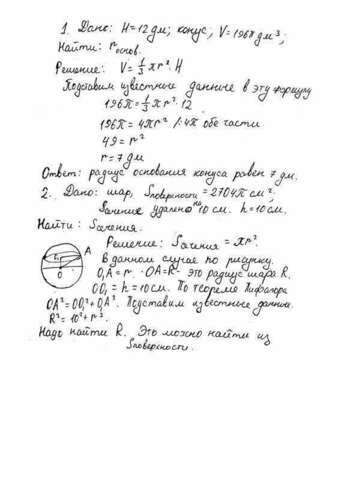 1. Дано: H=12 дм; конус, V=196π дм³;
Найти: r основ.
Решение: V=1/3 πr²·H
Подставим известные данные в эту формулу
196π=1/3 πr²·12
196π=4πr² /:4π обе части
49=r²
r=7 дм
Ответ: радиус основания конуса равен 7 дм.
2. Дано: шар, Sповерхности=2704π см²,
Sечение удалено на 10 см. h=10 см.
Найти: Sечения.
Решение: Sечения=πr².
В данном случае по рисунку.
A
h
r
O
O₁A=r. OA=R - это радиус шара R.
OO₁=h=10см. По теореме Пифагора
OA²=OO₁²+O₁A². Подставим известные данные.
R²=10²+r².
Надо найти R. Это можно найти из
Sповерхности.